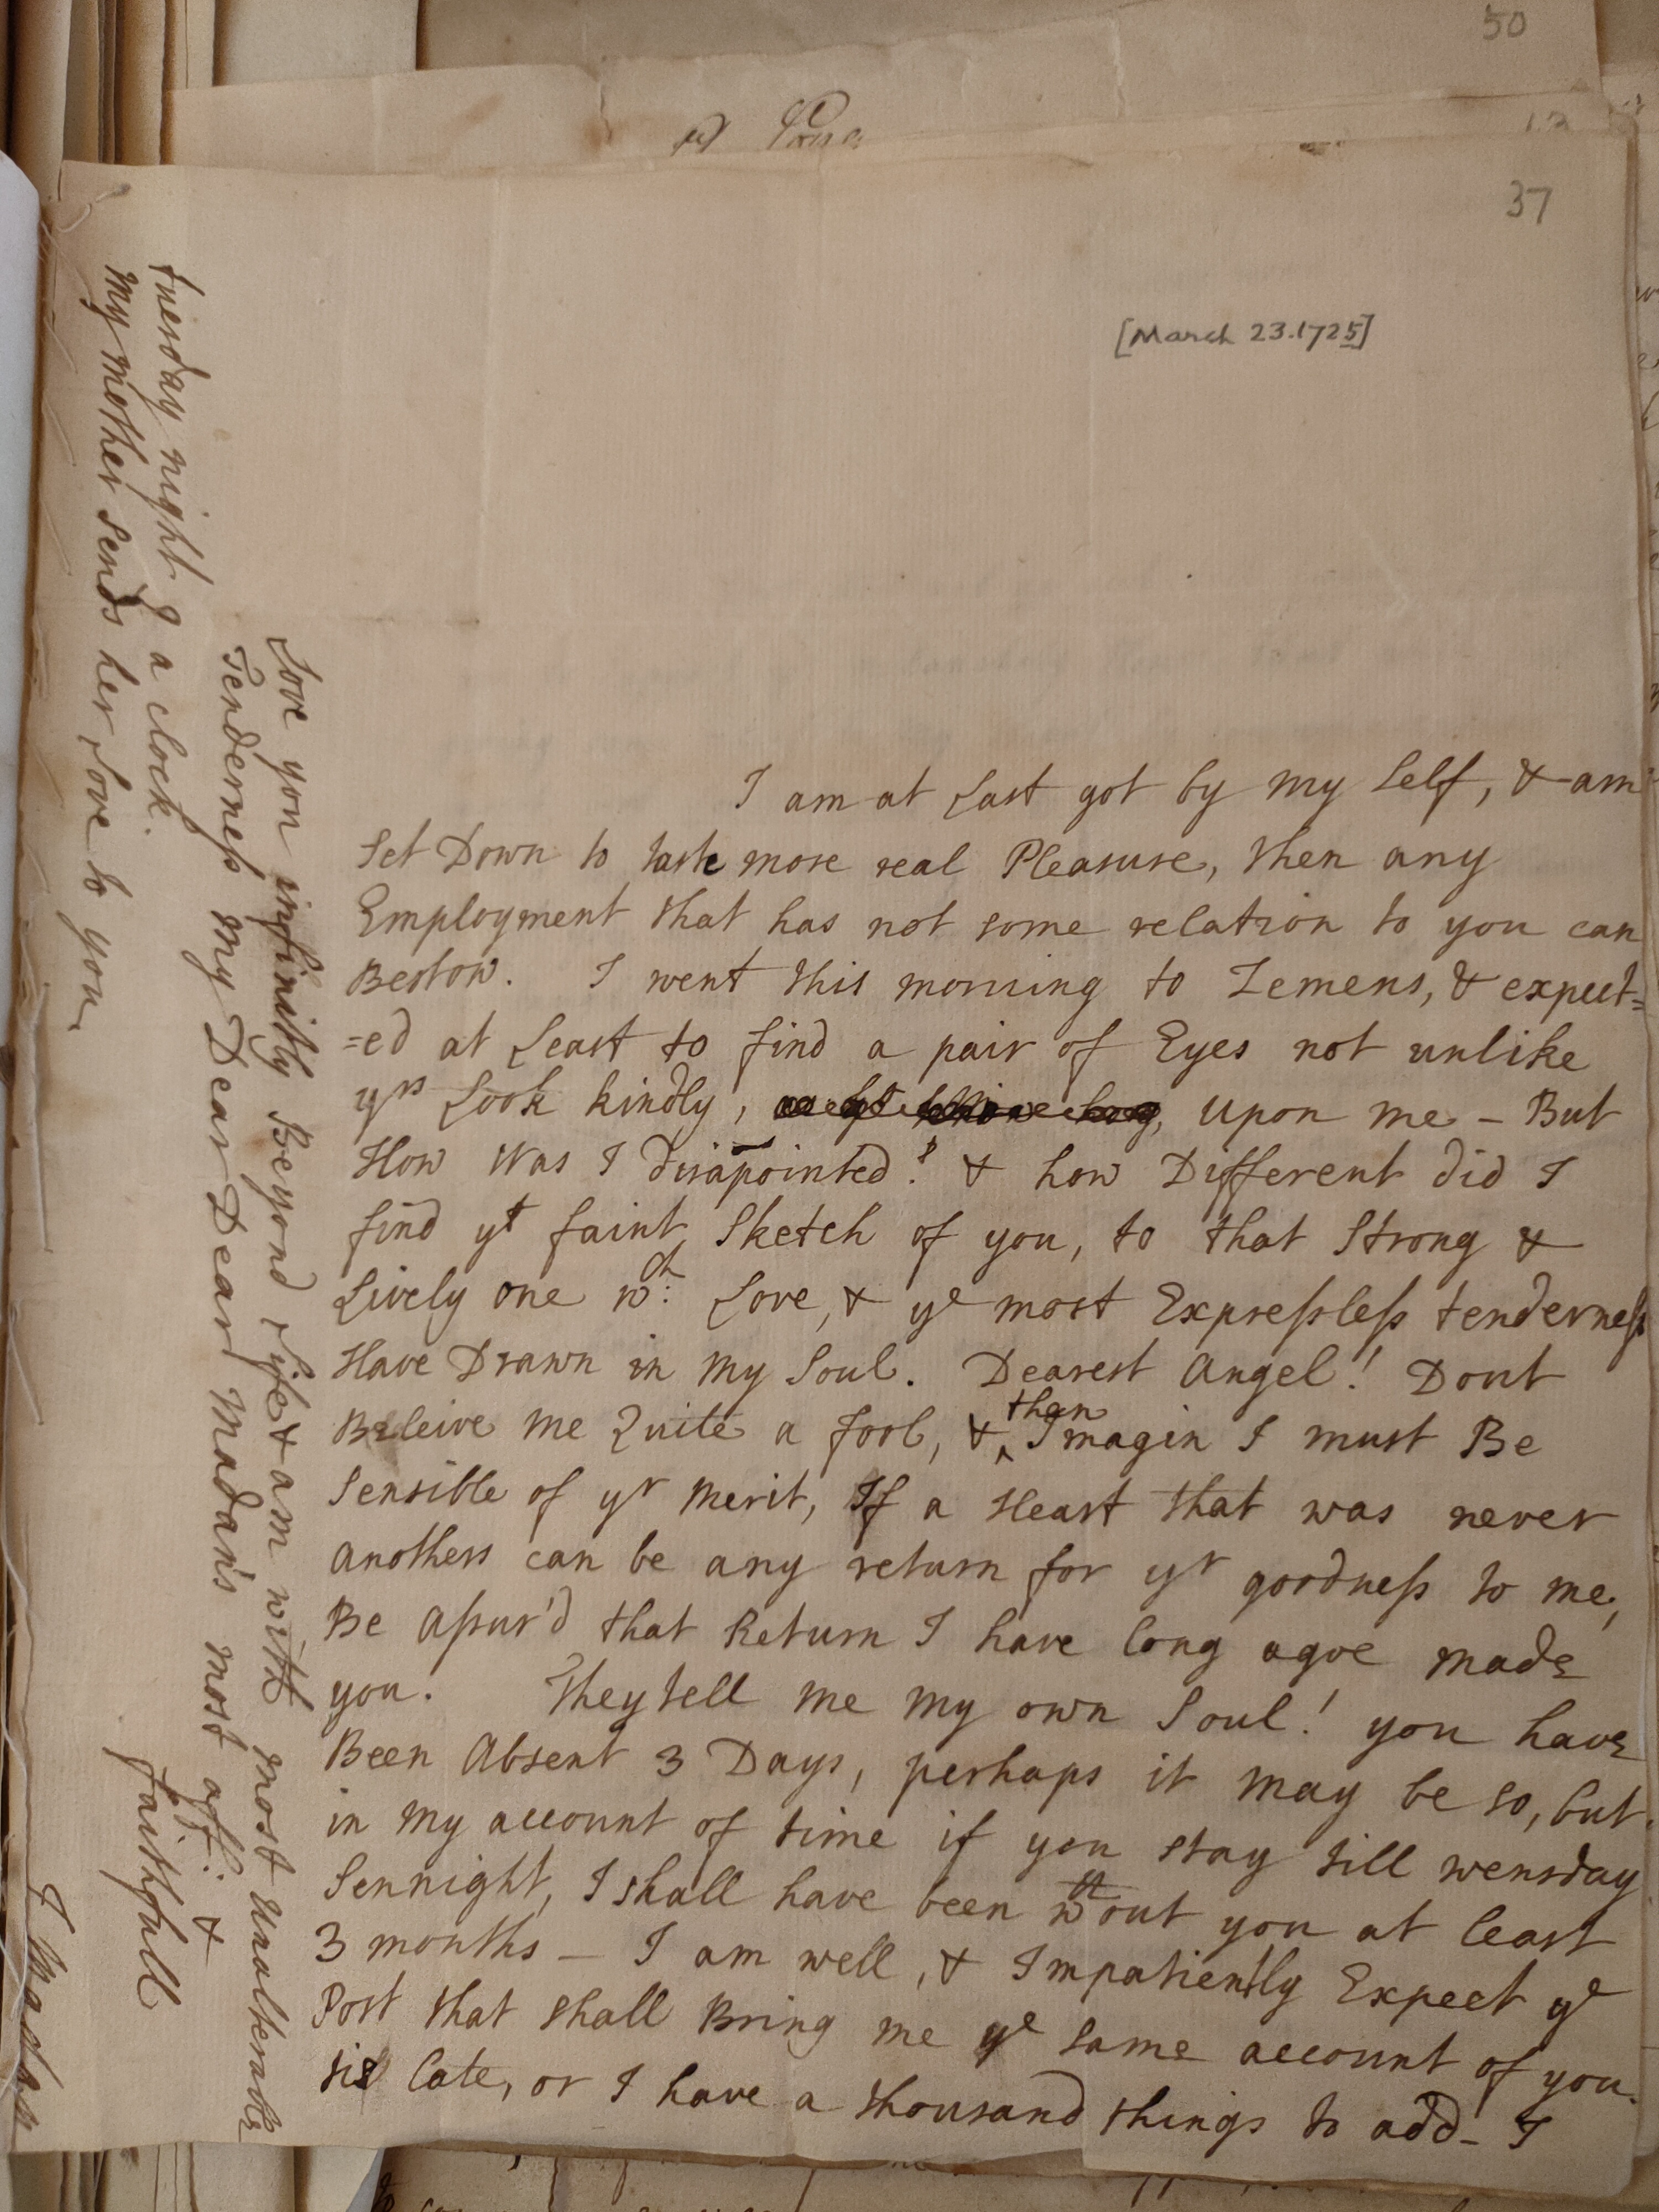 50
37
[March 23. 1725]
I am at Last got by my Self, & am
Set Down to taste more real Pleasure, then any
Employment that has not some relation to you can
Bestow. I went this morning to Zemens, & expect=
=ed at Least to find a pair of Eyes not unlike
yrs Look kindly, upon me - But
How Was I disapointed! & how Different did I
find yt faint Sketch of you, to that Strong &
Lively one wch: Love, & ye most Expressless tenderness
Have Drawn in my Soul. Dearest Angel! Dont
Beleive me Quite a fool, & than Imagin I must Be
Sensible of yr merit, If a Heart that was never
anothers can be any return for yr goodness to me,
Be assur'd that Return I have long agoe made
you. They tell me my own Soul! you have
Been Absent 3 Days, perhaps it may be so, but
in my account of time if you stay till wensday
Sennight, I shall have been wthout you at least
3 months - I am well, & Impatiently Expect ye
Post that shall Bring me ye same account of you.
tis late, or I have a thousand things to add - I
Love you infinitly Beyond Life & am with most unalterable
Tenderness my Dear Dear Madan's most aff: &
faithfull
J Madan
tuesday night a clock.
my mother sends her Love to you